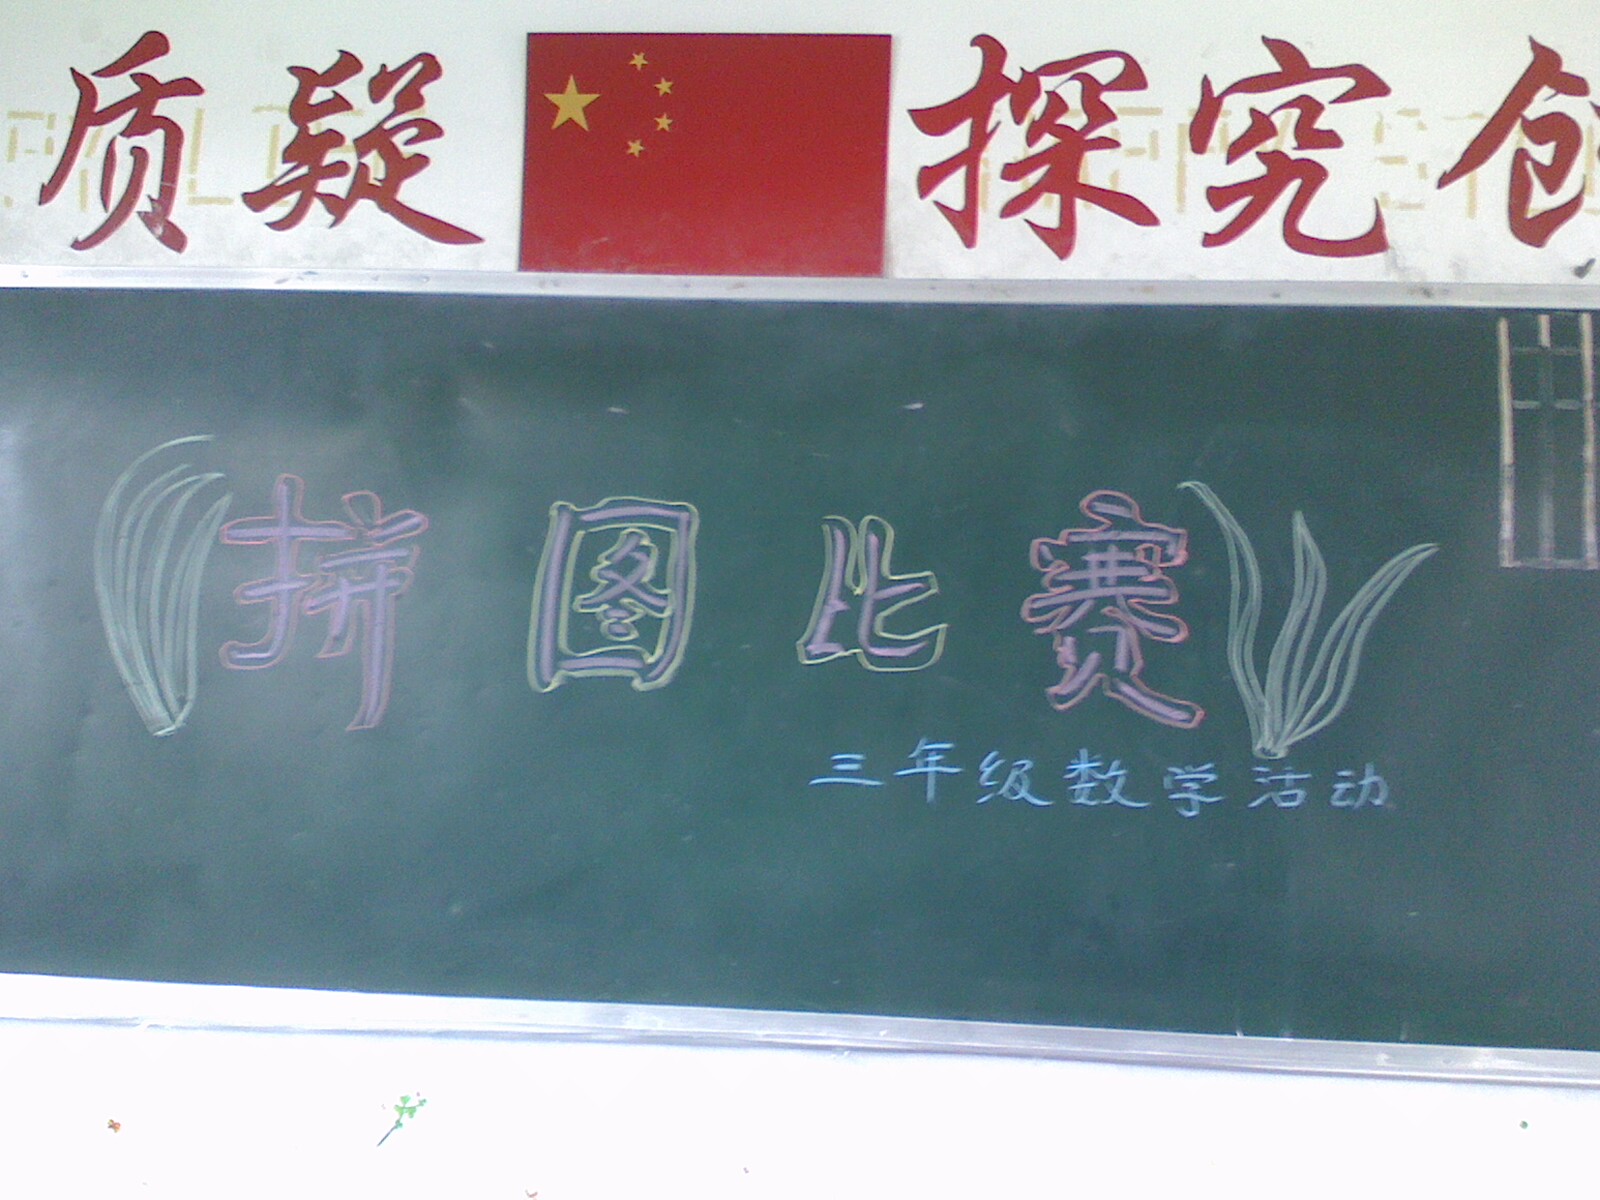 质疑 探究 创
拼图比赛
三年级数学活动